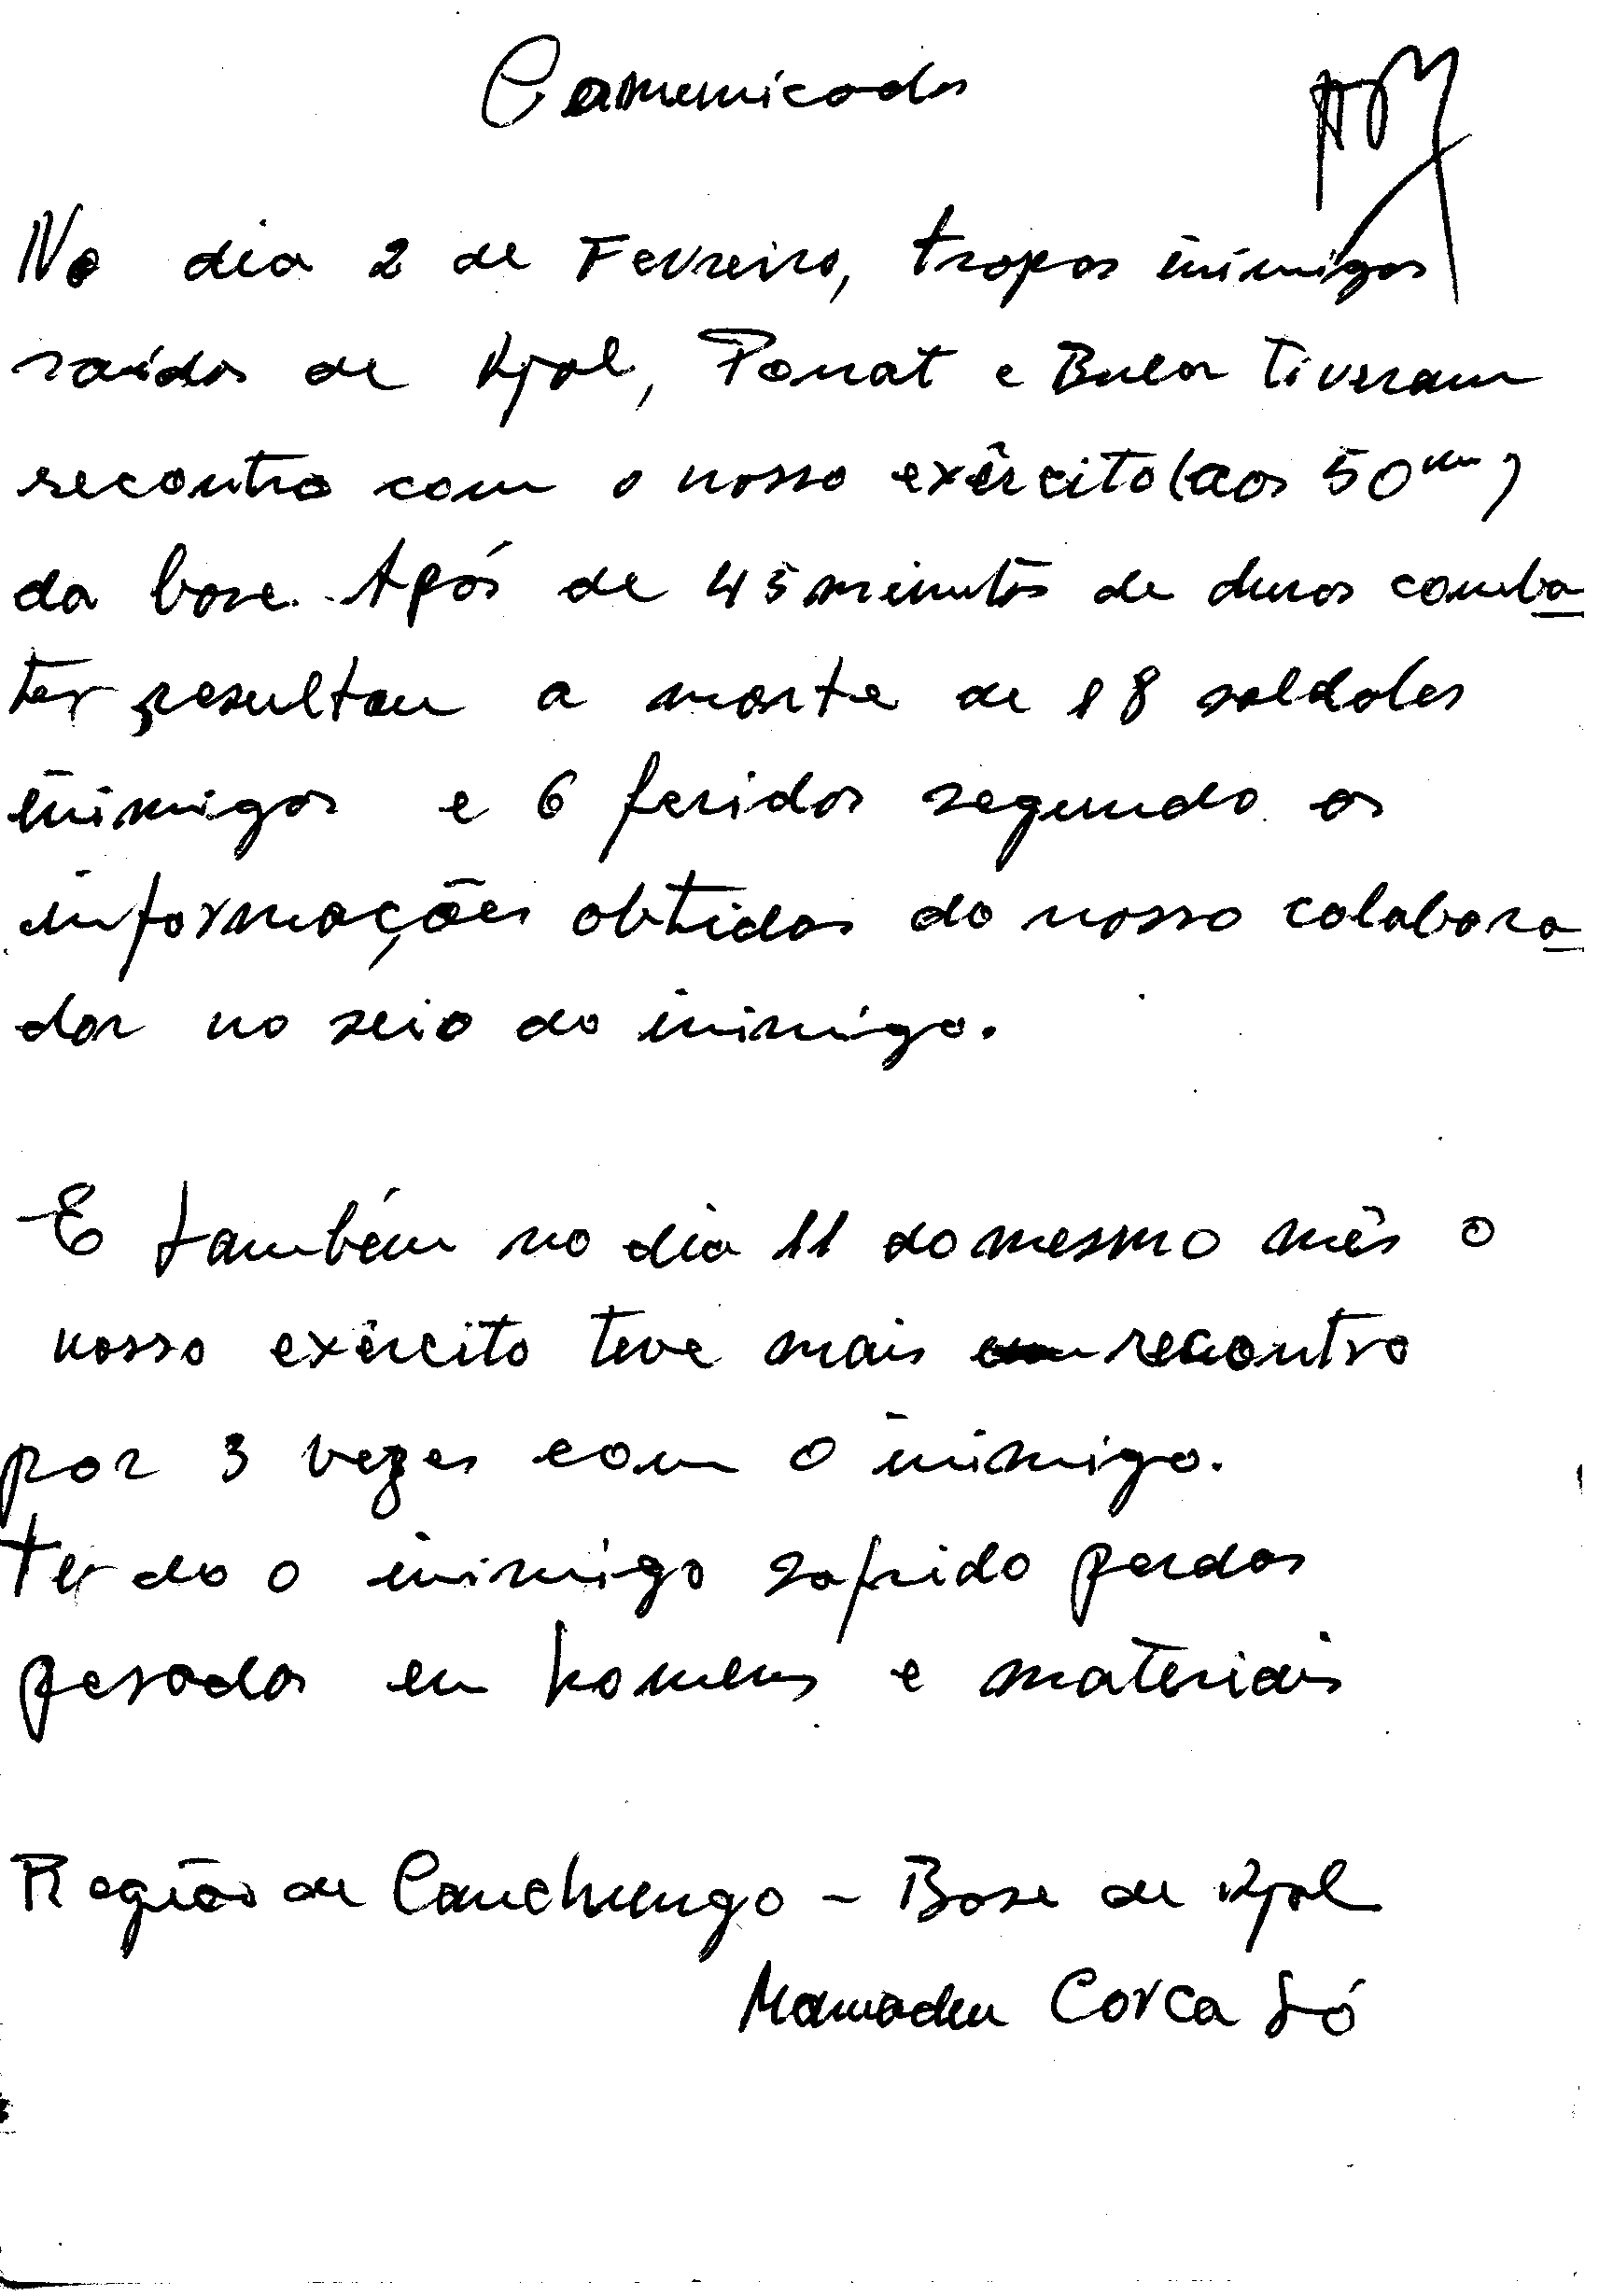 Comunicado
No dia 2 de Fevreiro, tropas inimigas
saídas de Kjol, Ponat e Bula tiveram
recontro com o nosso exêrcito (aos 50m)
da base. Após de 45 minutos de duros comba
tes resultou a morte de 18 soldades
inimigos e 6 feridos segundo as
informações obtidas do nosso colabora
dor no seio do inimigo.
E também no dia 11 do mesmo mês o
nosso exêrcito teve mais recontro
por 3 vezes com o inimigo.
Tendo o inimigo sofrido perdas
pesadas em homens e materiais
Região de Canchungo - Base de Kjol
Mamadu Corca Só